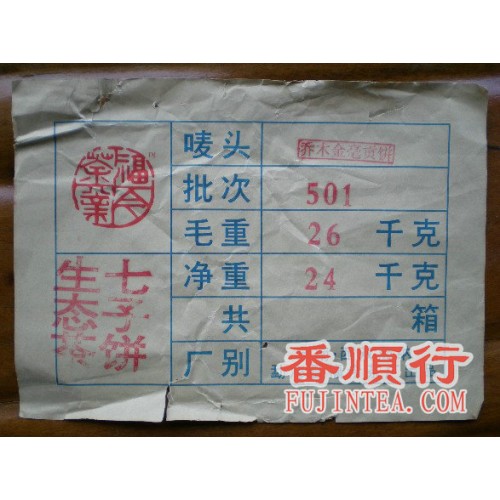 福今
茶業
TM
七子饼
生态茶
唛头 乔木金毫贡饼
批次 501
毛重 26 千克
净重 24 千克
共 箱
厂别
番順行
FUJINTEA.COM